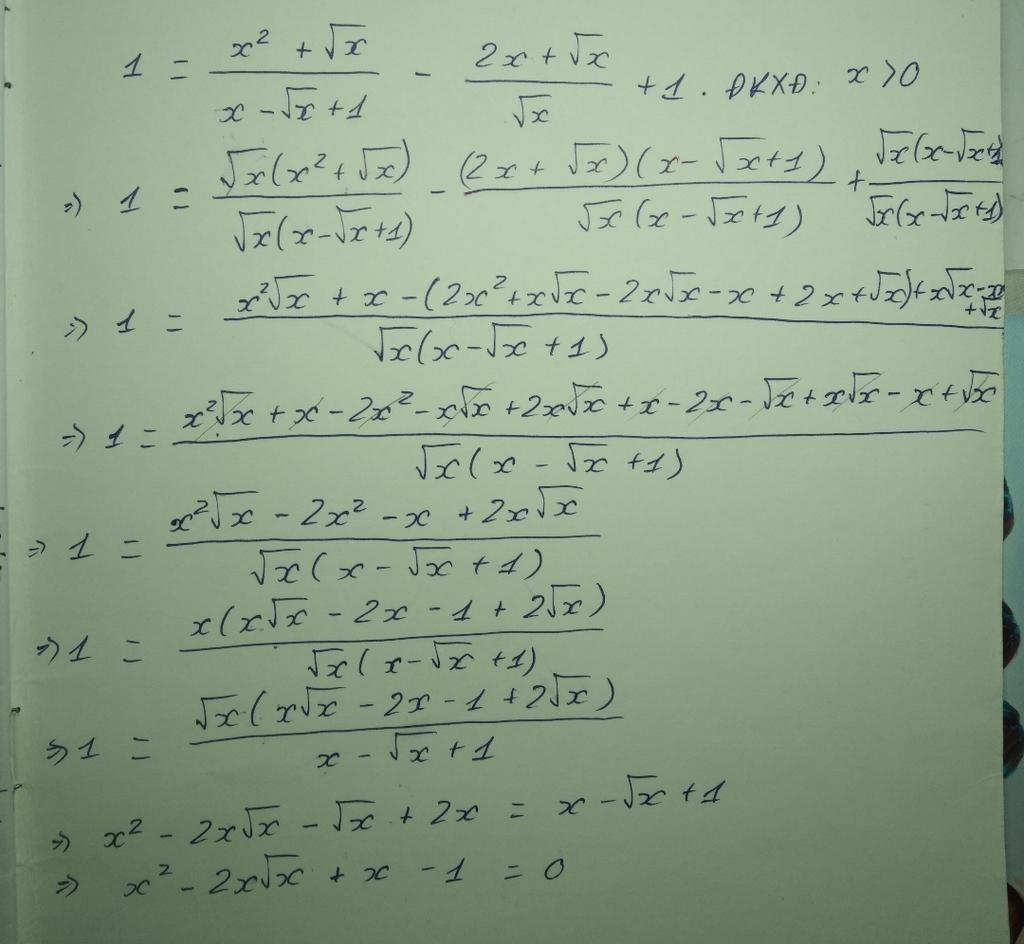 1 = (x² + √x)/(x - √x + 1) - (2x + √x)/√x + 1. ĐKXĐ: x > 0
=> 1 = √x(x² + √x)/√x(x - √x + 1) - (2x + √x)(x - √x + 1)/√x(x - √x + 1) + √x(x - √x + 1)/√x(x - √x + 1)
=> 1 = (x²√x + x - (2x² + x√x - 2x√x - x + 2x + √x) + x√x - x + √x)/√x(x - √x + 1)
=> 1 = (x²√x + x - 2x² - x√x + 2x√x + x - 2x - √x + x√x - x + √x)/√x(x - √x + 1)
=> 1 = (x²√x - 2x² - x + 2x√x)/√x(x - √x + 1)
=> 1 = x(x√x - 2x - 1 + 2√x)/√x(x - √x + 1)
=> 1 = √x(x√x - 2x - 1 + 2√x)/(x - √x + 1)
=> x² - 2x√x - √x + 2x = x - √x + 1
=> x² - 2x√x + x - 1 = 0